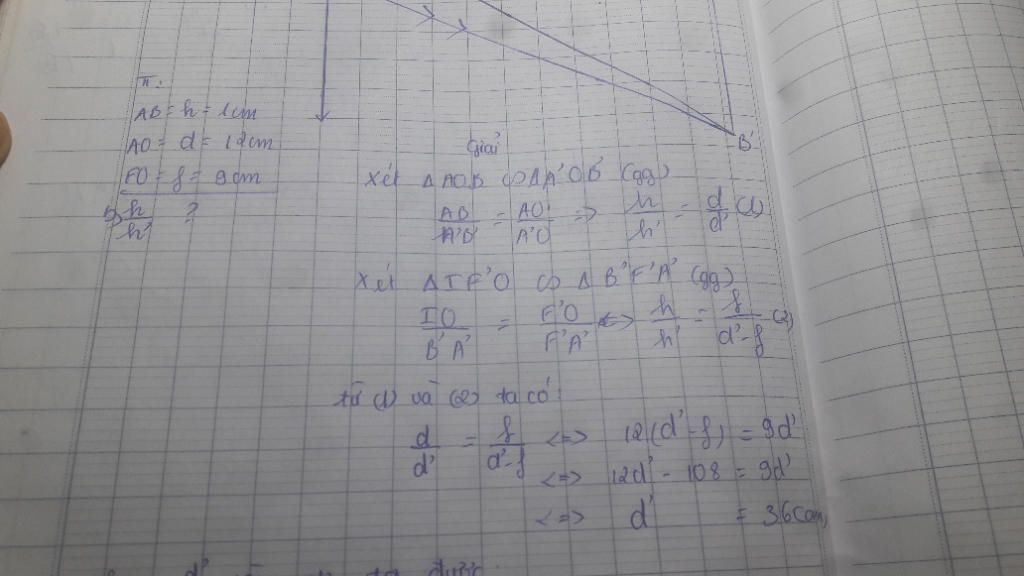 B'
π:
AB = h = 1cm
AO = d = 12cm
FO = f = 9cm
h/h' ?
Giải
Xét Δ AOB ∽ Δ A'OB' (gg)
AB/A'B' = AO/A'O => h/h' = d/d' (1)
Xét Δ IF'O ∽ Δ B'F'A' (gg)
IO/B'A' = F'O/F'A' <=> h/h' = f/d'-f (2)
từ (1) và (2) ta có:
d/d' = f/d'-f <=> 12(d'-f) = 9d'
<=> 12d' - 108 = 9d'
<=> d' = 36(cm)